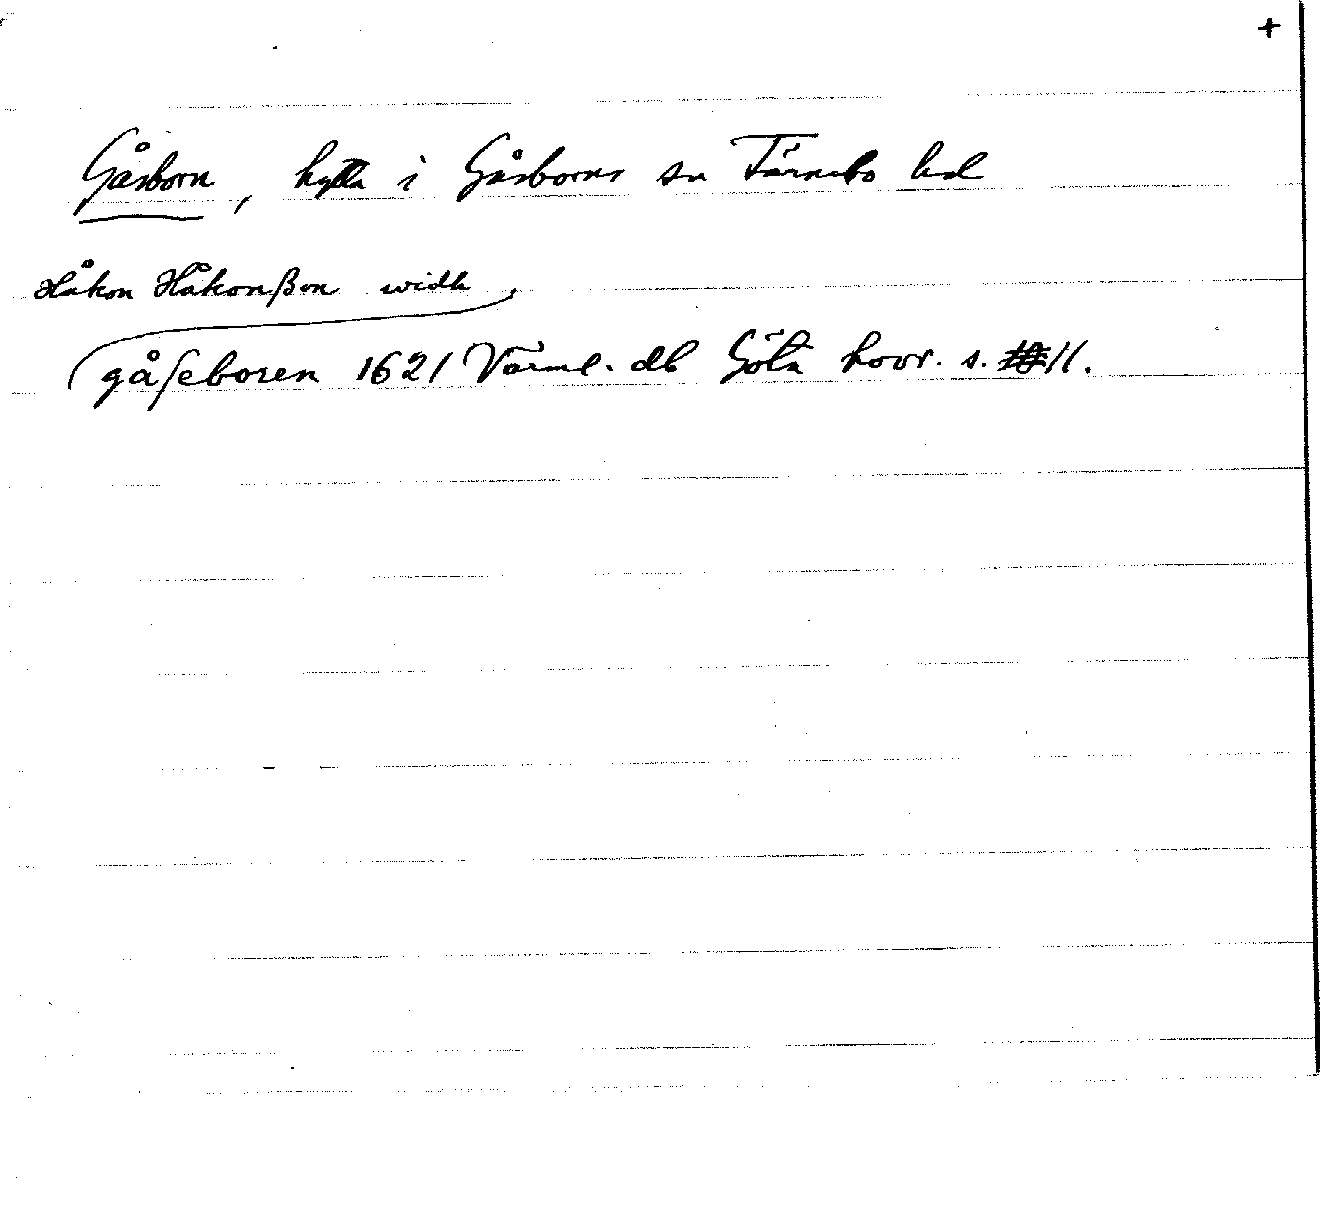 +
Gåsborn, hytta i Gåsborns sn Färnebo hd
Håkon Håkonßon widh
gåſeboren 1621 Värml. db Göta hovr. s. 11.